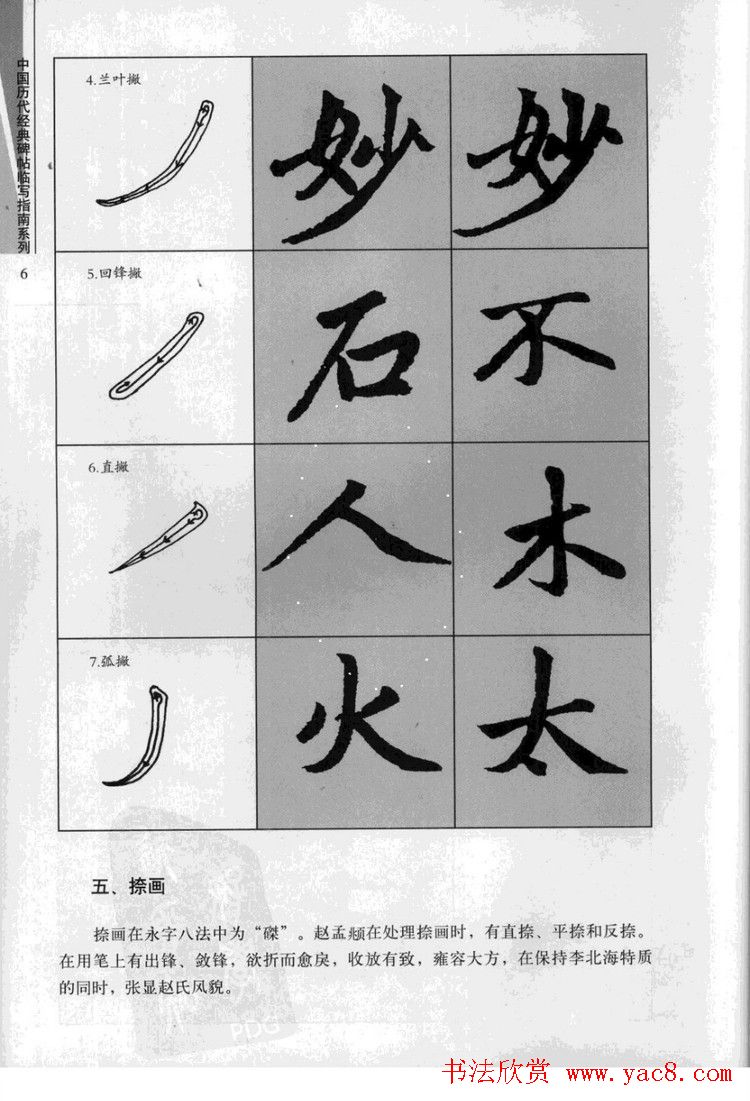 中国历代经典碑帖临写指南系列
6
4.兰叶撇
妙 妙
5.回锋撇
石 不
6.直撇
人 木
7.弧撇
火 太
五、捺画
捺画在永字八法中为“磔”。赵孟頫在处理捺画时，有直捺、平捺和反捺。
在用笔上有出锋、敛锋，欲折而愈戾，收放有致，雍容大方，在保持李北海特质
的同时，张显赵氏风貌。
PDG
书法欣赏 www.yac8.com